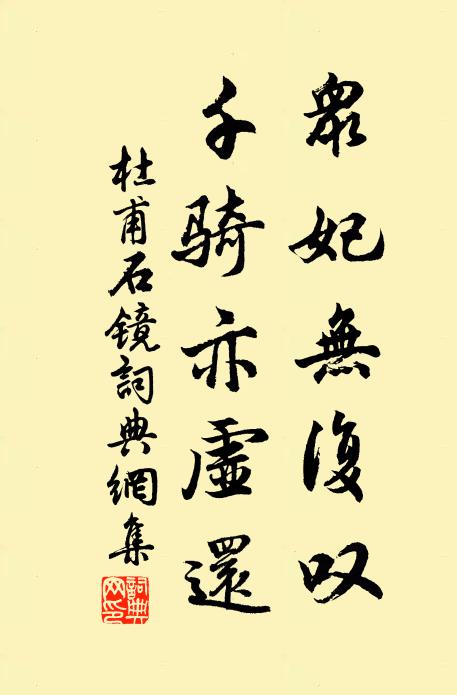 眾妃無復叹
千騎亦虛還
杜甫石鏡詞典網集
詞典网印